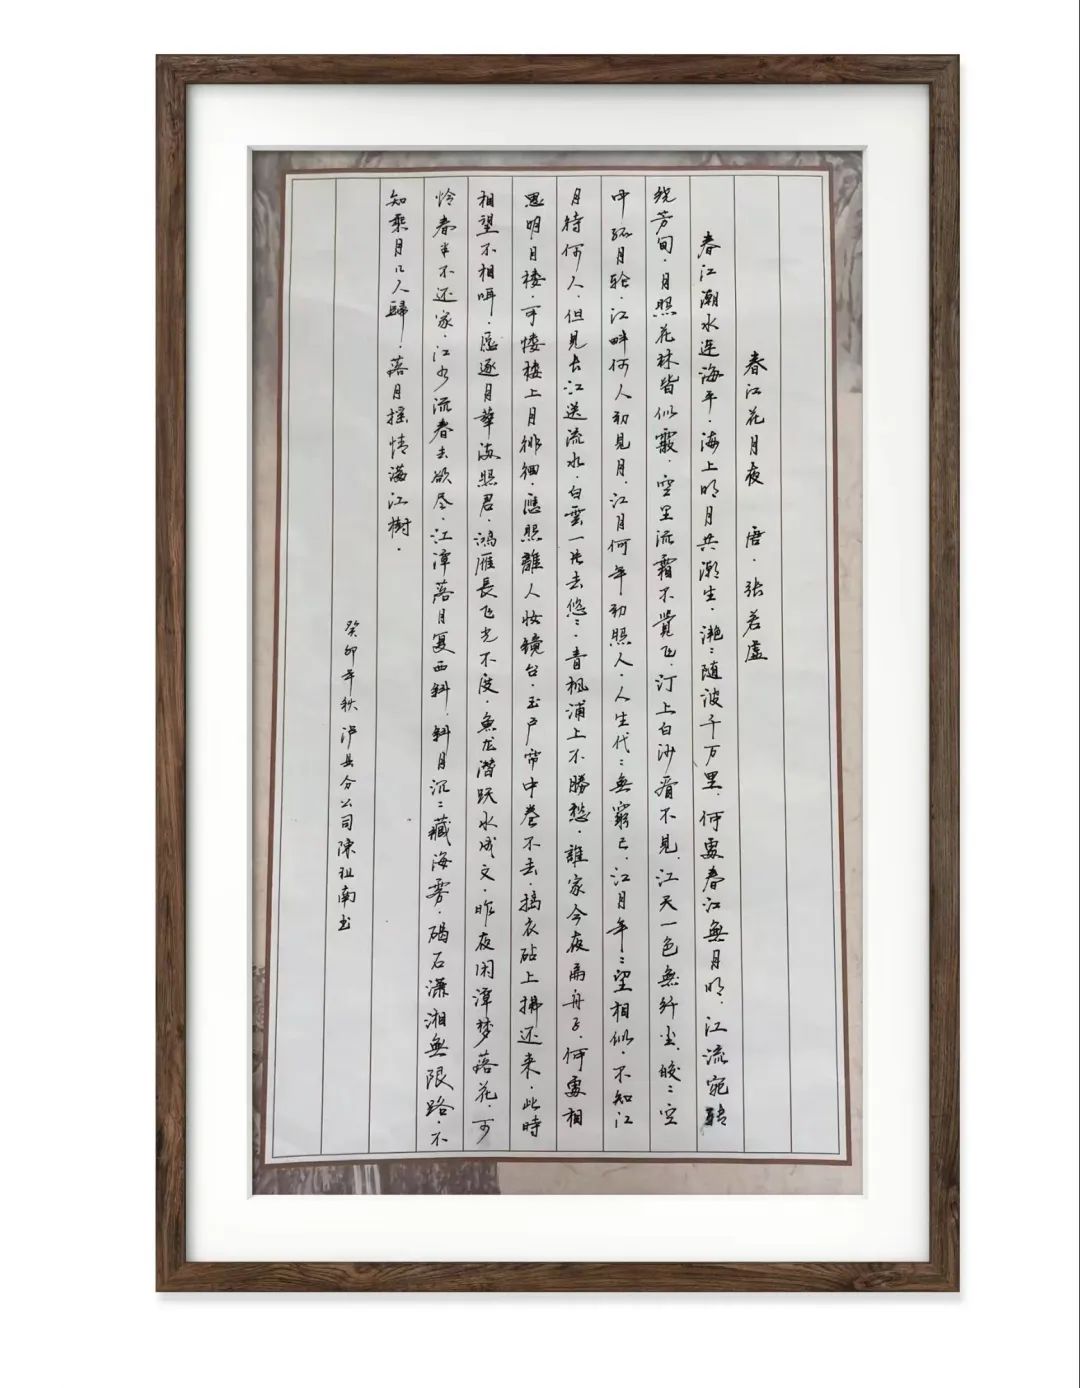 春江花月夜 唐·张若虚
春江潮水连海平·海上明月共潮生·滟〻随波千万里·何處春江無月明·江流宛轉
绕芳甸·月照花林皆似霰·空里流霜不覺飞·汀上白沙看不見·江天一色無纤尘·皎〻空
中孤月轮·江畔何人初見月·江月何年初照人·人生代〻無窮已·江月年〻望相似·不知江
月待何人·但見长江送流水·白雲一片去悠〻·青枫浦上不勝愁·誰家今夜扁舟子·何處相
思明月楼·可憐楼上月徘徊·應照離人妆镜台·玉户帘中卷不去·捣衣砧上拂还来·此時
相望不相闻·愿逐月華流照君·鴻雁長飞光不度·鱼龙潜跃水成文·昨夜闲潭梦落花·可
怜春半不还家·江水流春去欲尽·江潭落月复西斜·斜月沉〻藏海雾·碣石潇湘無限路·不
知乘月几人歸·落月摇情滿江樹·
癸卯年秋泸县分公司陳祖南书